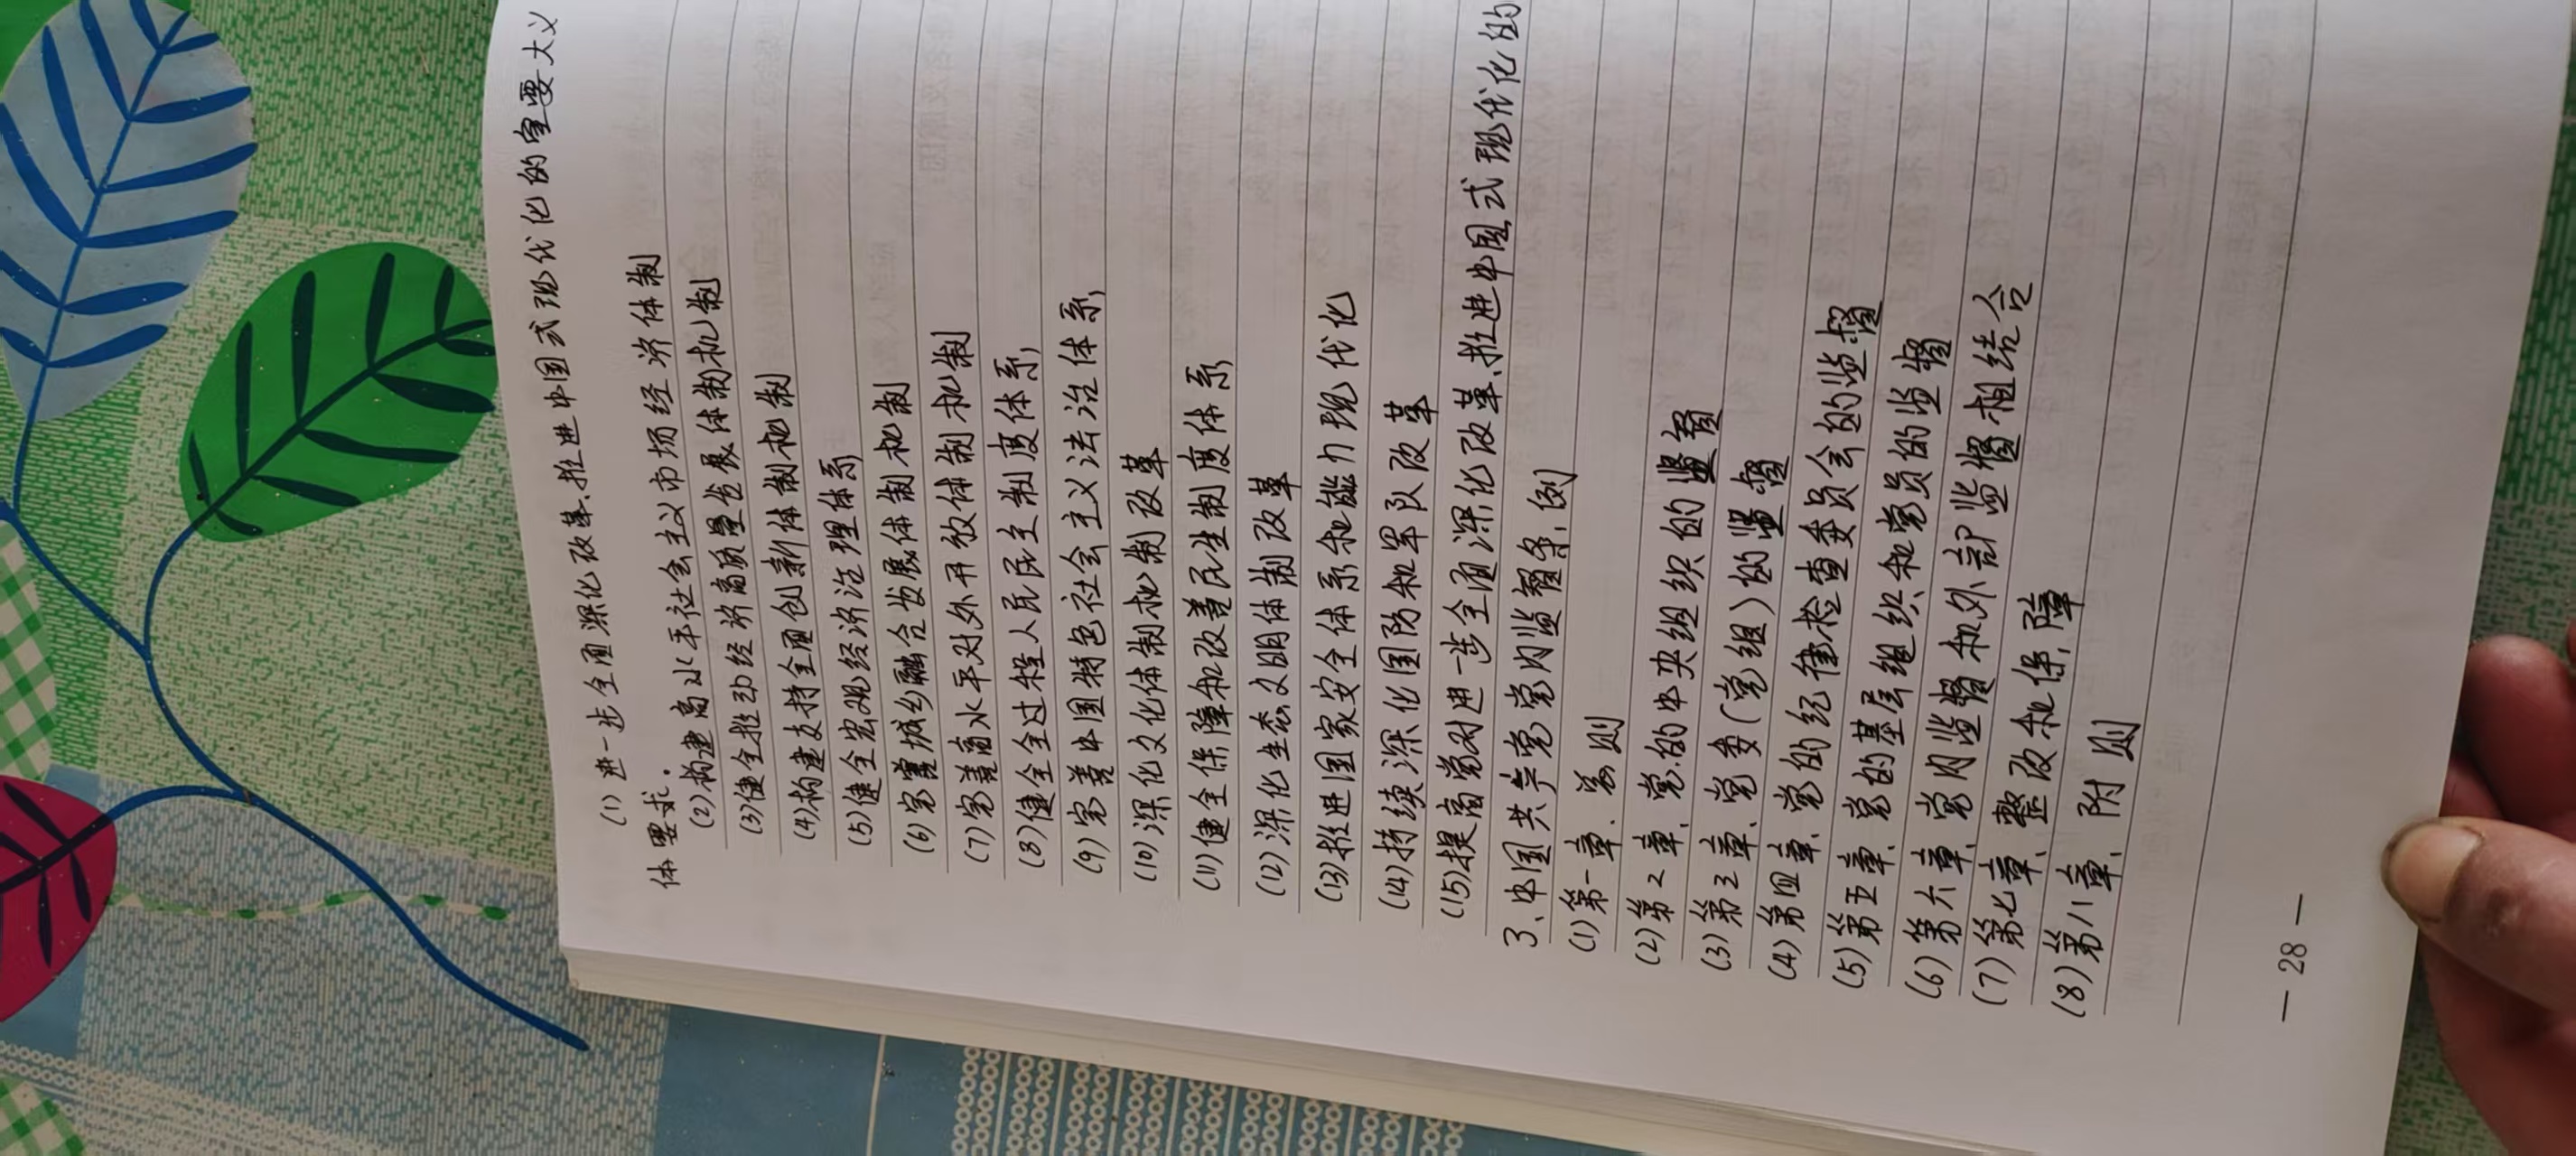 (1)进一步全面深化改革、推进中国式现代化的重要大义
体要求。
(2)构建高水平社会主义市场经济体制
(3)健全推动经济高质量发展体制机制
(4)构建支持全面创新体制机制
(5)健全宏观经济治理体系
(6)完善城乡融合发展体制机制
(7)完善高水平对外开放体制机制
(8)健全全过程人民民主制度体系
(9)完善中国特色社会主义法治体系
(10)深化文化体制机制改革
(11)健全保障和改善民生制度体系
(12)深化生态文明体制改革
(13)推进国家安全体系和能力现代化
(14)持续深化国防和军队改革
(15)提高党对进一步全面深化改革、推进中国式现代化的
3、中国共产党党内监督条例
(1)第一章、总则
(2)第2章、党的中央组织的监督
(3)第三章、党委(党组)的监督
(4)第四章、党的纪律检查委员会的监督
(5)第五章、党的基层组织和党员的监督
(6)第六章、党内监督和外部监督相结合
(7)第七章、整改和保障
(8)第八章、附则
— 28 —